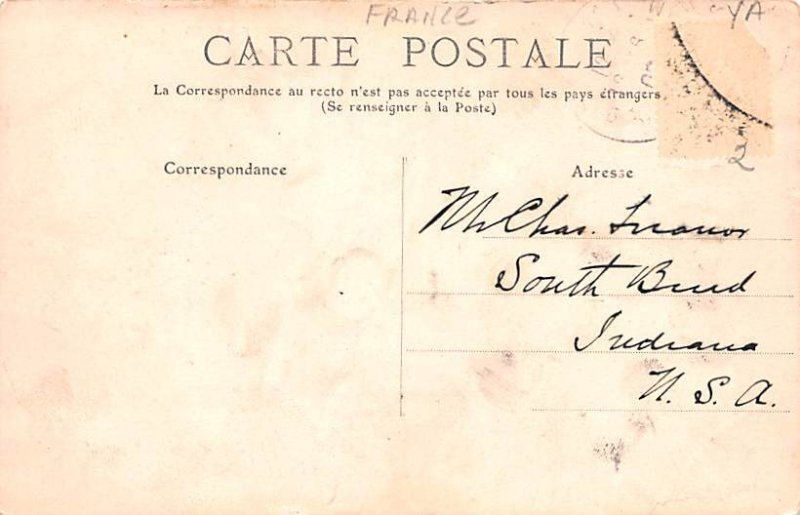 FRANCE
YA
CARTE POSTALE
La Correspondance au recto n'est pas acceptée par tous les pays étrangers
(Se renseigner à la Poste)
2
Correspondance
Adresse
Mr Chas.
South Bend
Indiana
U. S. A.